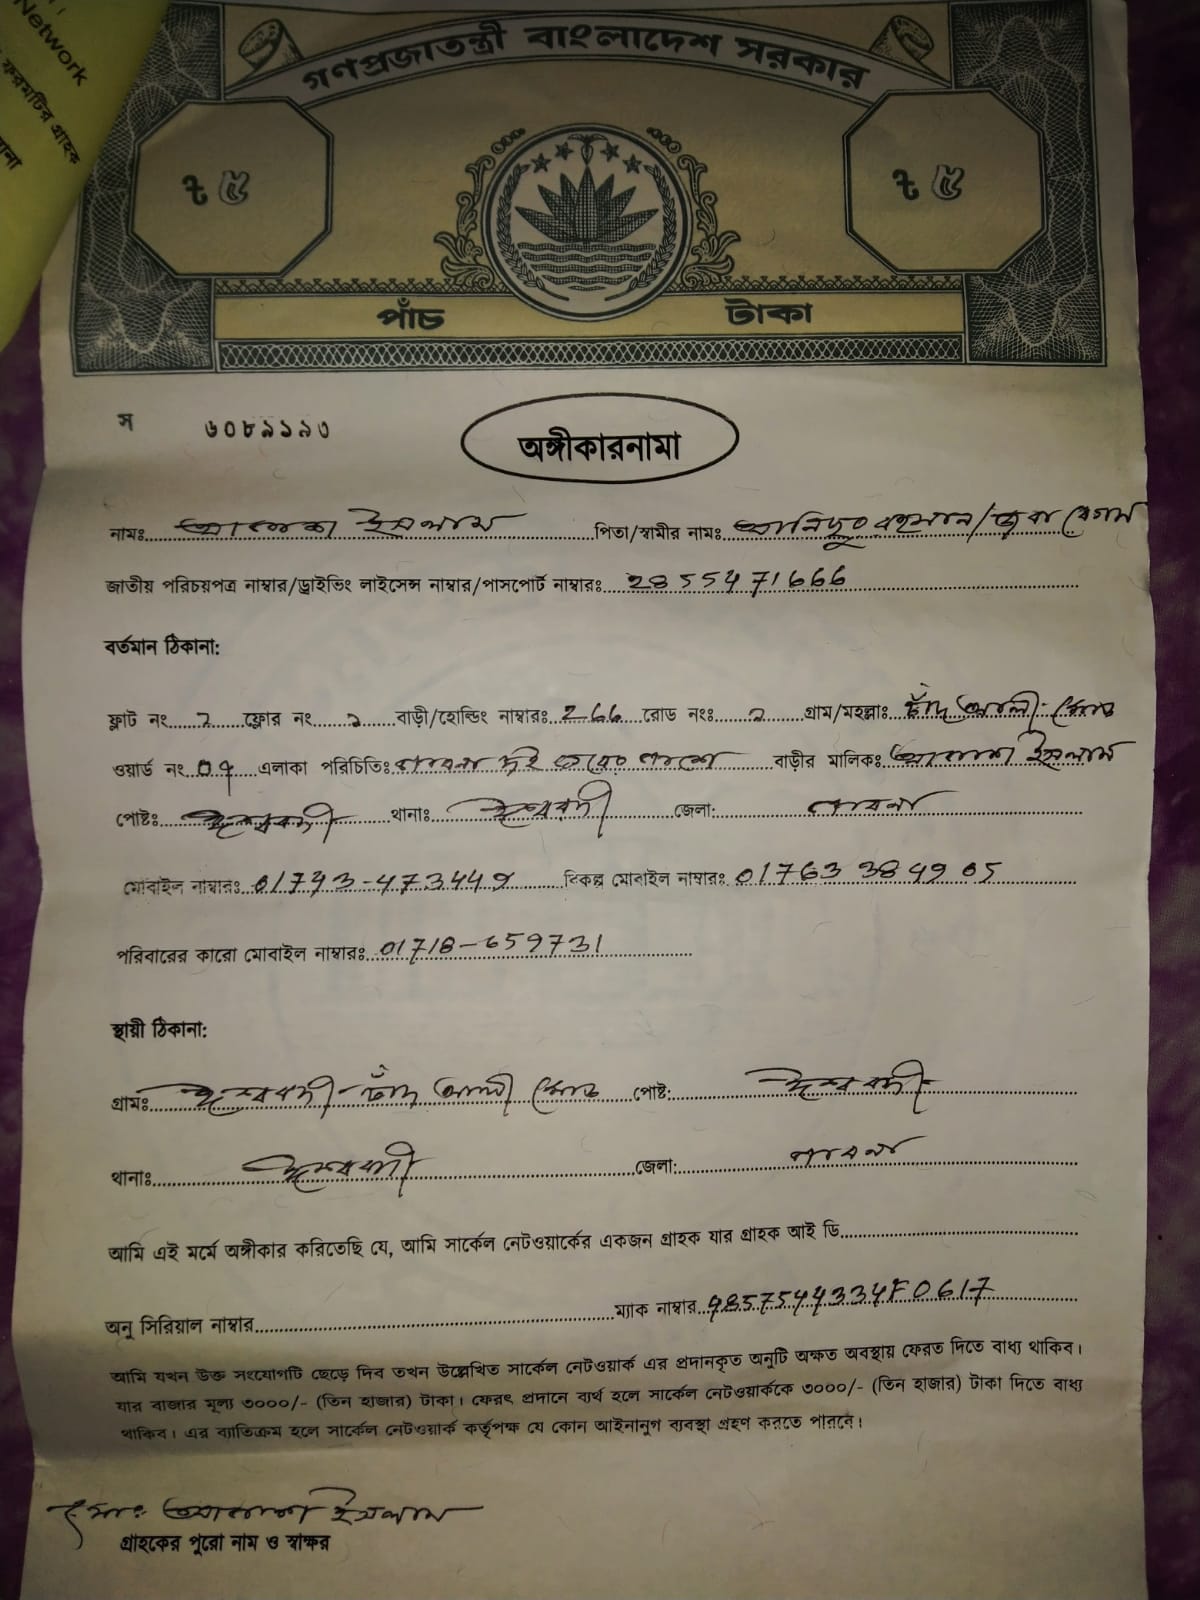 Network
ফরমটির গ্রাহক
গণপ্রজাতন্ত্রী বাংলাদেশ সরকার
৳ ৫
৳ ৫
পাঁচ টাকা
স ৬০৮৯১৯৩
অঙ্গীকারনামা
নামঃ ইসলাম পিতা/স্বামীর নামঃ আনিছুর রহমান/জবা বেগম
জাতীয় পরিচয়পত্র নাম্বার/ড্রাইভিং লাইসেন্স নাম্বার/পাসপোর্ট নাম্বারঃ 2855471666
বর্তমান ঠিকানা:
ফ্লাট নং ২ ফ্লোর নং ২ বাড়ী/হোল্ডিং নাম্বারঃ 266 রোড নংঃ ২ গ্রাম/মহল্লাঃ চাঁদ আলী মোড়
ওয়ার্ড নং 07 এলাকা পরিচিতিঃ পাবনা সুই পাশে বাড়ীর মালিকঃ ইসলাম
পোষ্টঃ ঈশ্বরদী থানাঃ ঈশ্বরদী জেলা: পাবনা
মোবাইল নাম্বারঃ 01743-473449 বিকল্প মোবাইল নাম্বারঃ 01763 384905
পরিবারের কারো মোবাইল নাম্বারঃ 01718-659731
স্থায়ী ঠিকানা:
গ্রামঃ ঈশ্বরদী চাঁদ আলী মোড় পোষ্ট: ঈশ্বরদী
থানাঃ ঈশ্বরদী জেলা: পাবনা
আমি এই মর্মে অঙ্গীকার করিতেছি যে, আমি সার্কেল নেটওয়ার্কের একজন গ্রাহক যার গ্রাহক আই ডি
অনু সিরিয়াল নাম্বার ম্যাক নাম্বার
আমি যখন উক্ত সংযোগটি ছেড়ে দিব তখন উল্লেখিত সার্কেল নেটওয়ার্ক এর প্রদানকৃত অনুটি অক্ষত অবস্থায় ফেরত দিতে বাধ্য থাকিব।
যার বাজার মূল্য ৩০০০/- (তিন হাজার) টাকা। ফেরৎ প্রদানে ব্যর্থ হলে সার্কেল নেটওয়ার্ককে ৩০০০/- (তিন হাজার) টাকা দিতে বাধ্য
থাকিব। এর ব্যাতিক্রম হলে সার্কেল নেটওয়ার্ক কর্তৃপক্ষ যে কোন আইনানুগ ব্যবস্থা গ্রহণ করতে পারবে।
মোঃ ইসলাম
গ্রাহকের পুরো নাম ও স্বাক্ষর